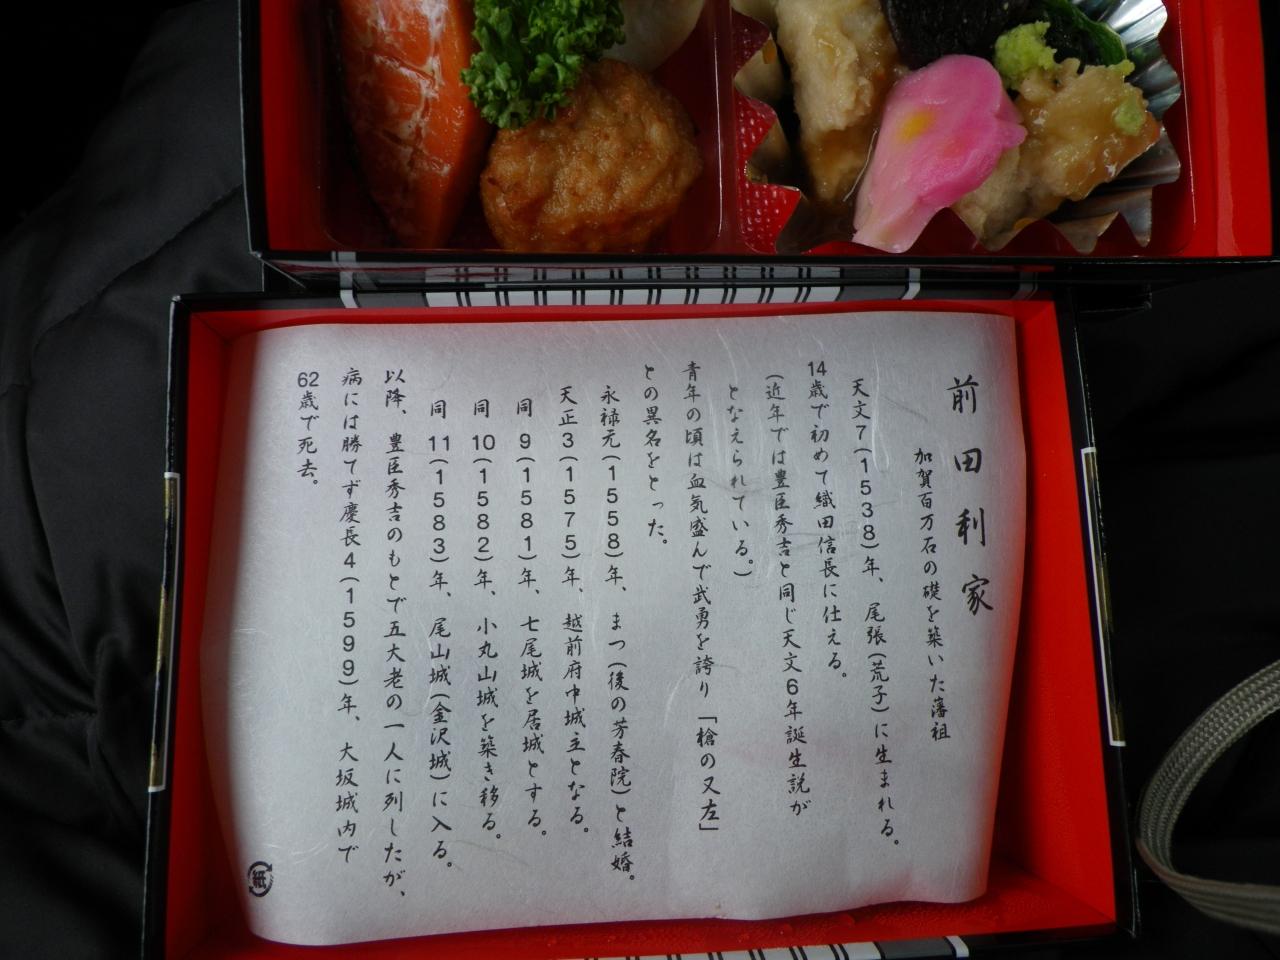 前田利家
加賀百万石の礎を築いた藩祖
天文7(1538)年、尾張(荒子)に生まれる。
14歳で初めて織田信長に仕える。
(近年では豊臣秀吉と同じ天文6年誕生説が
となえられている。)
青年の頃は血気盛んで武勇を誇り「槍の又左」
との異名をとった。
永禄元(1558)年、まつ(後の芳春院)と結婚。
天正3(1575)年、越前府中城主となる。
同 9(1581)年、七尾城を居城とする。
同 10(1582)年、小丸山城を築き移る。
同 11(1583)年、尾山城(金沢城)に入る。
以降、豊臣秀吉のもとで五大老の一人に列したが、
病には勝てず慶長4(1599)年、大坂城内で
62歳で死去。
紙